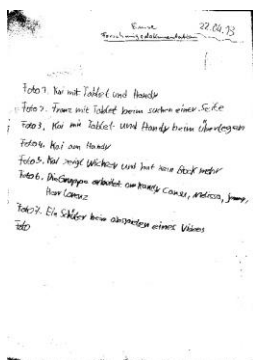 22.04.13
Forschungsdokumentation
Foto 1. Kai mit Tablet und Handy
Foto 2. Franz mit Tablet beim suchen einer Seite
Foto 3. Kai mit Tablet und Handy beim überlegen
Foto 4. Kai am Handy
Foto 5. Kai zeigt und hat kein Bock mehr
Foto 6. Die Gruppe arbeitet am Handy Melissa,
Herr Lorenz
Foto 7. Ein Schüler beim abspielen eines Videos
Foto